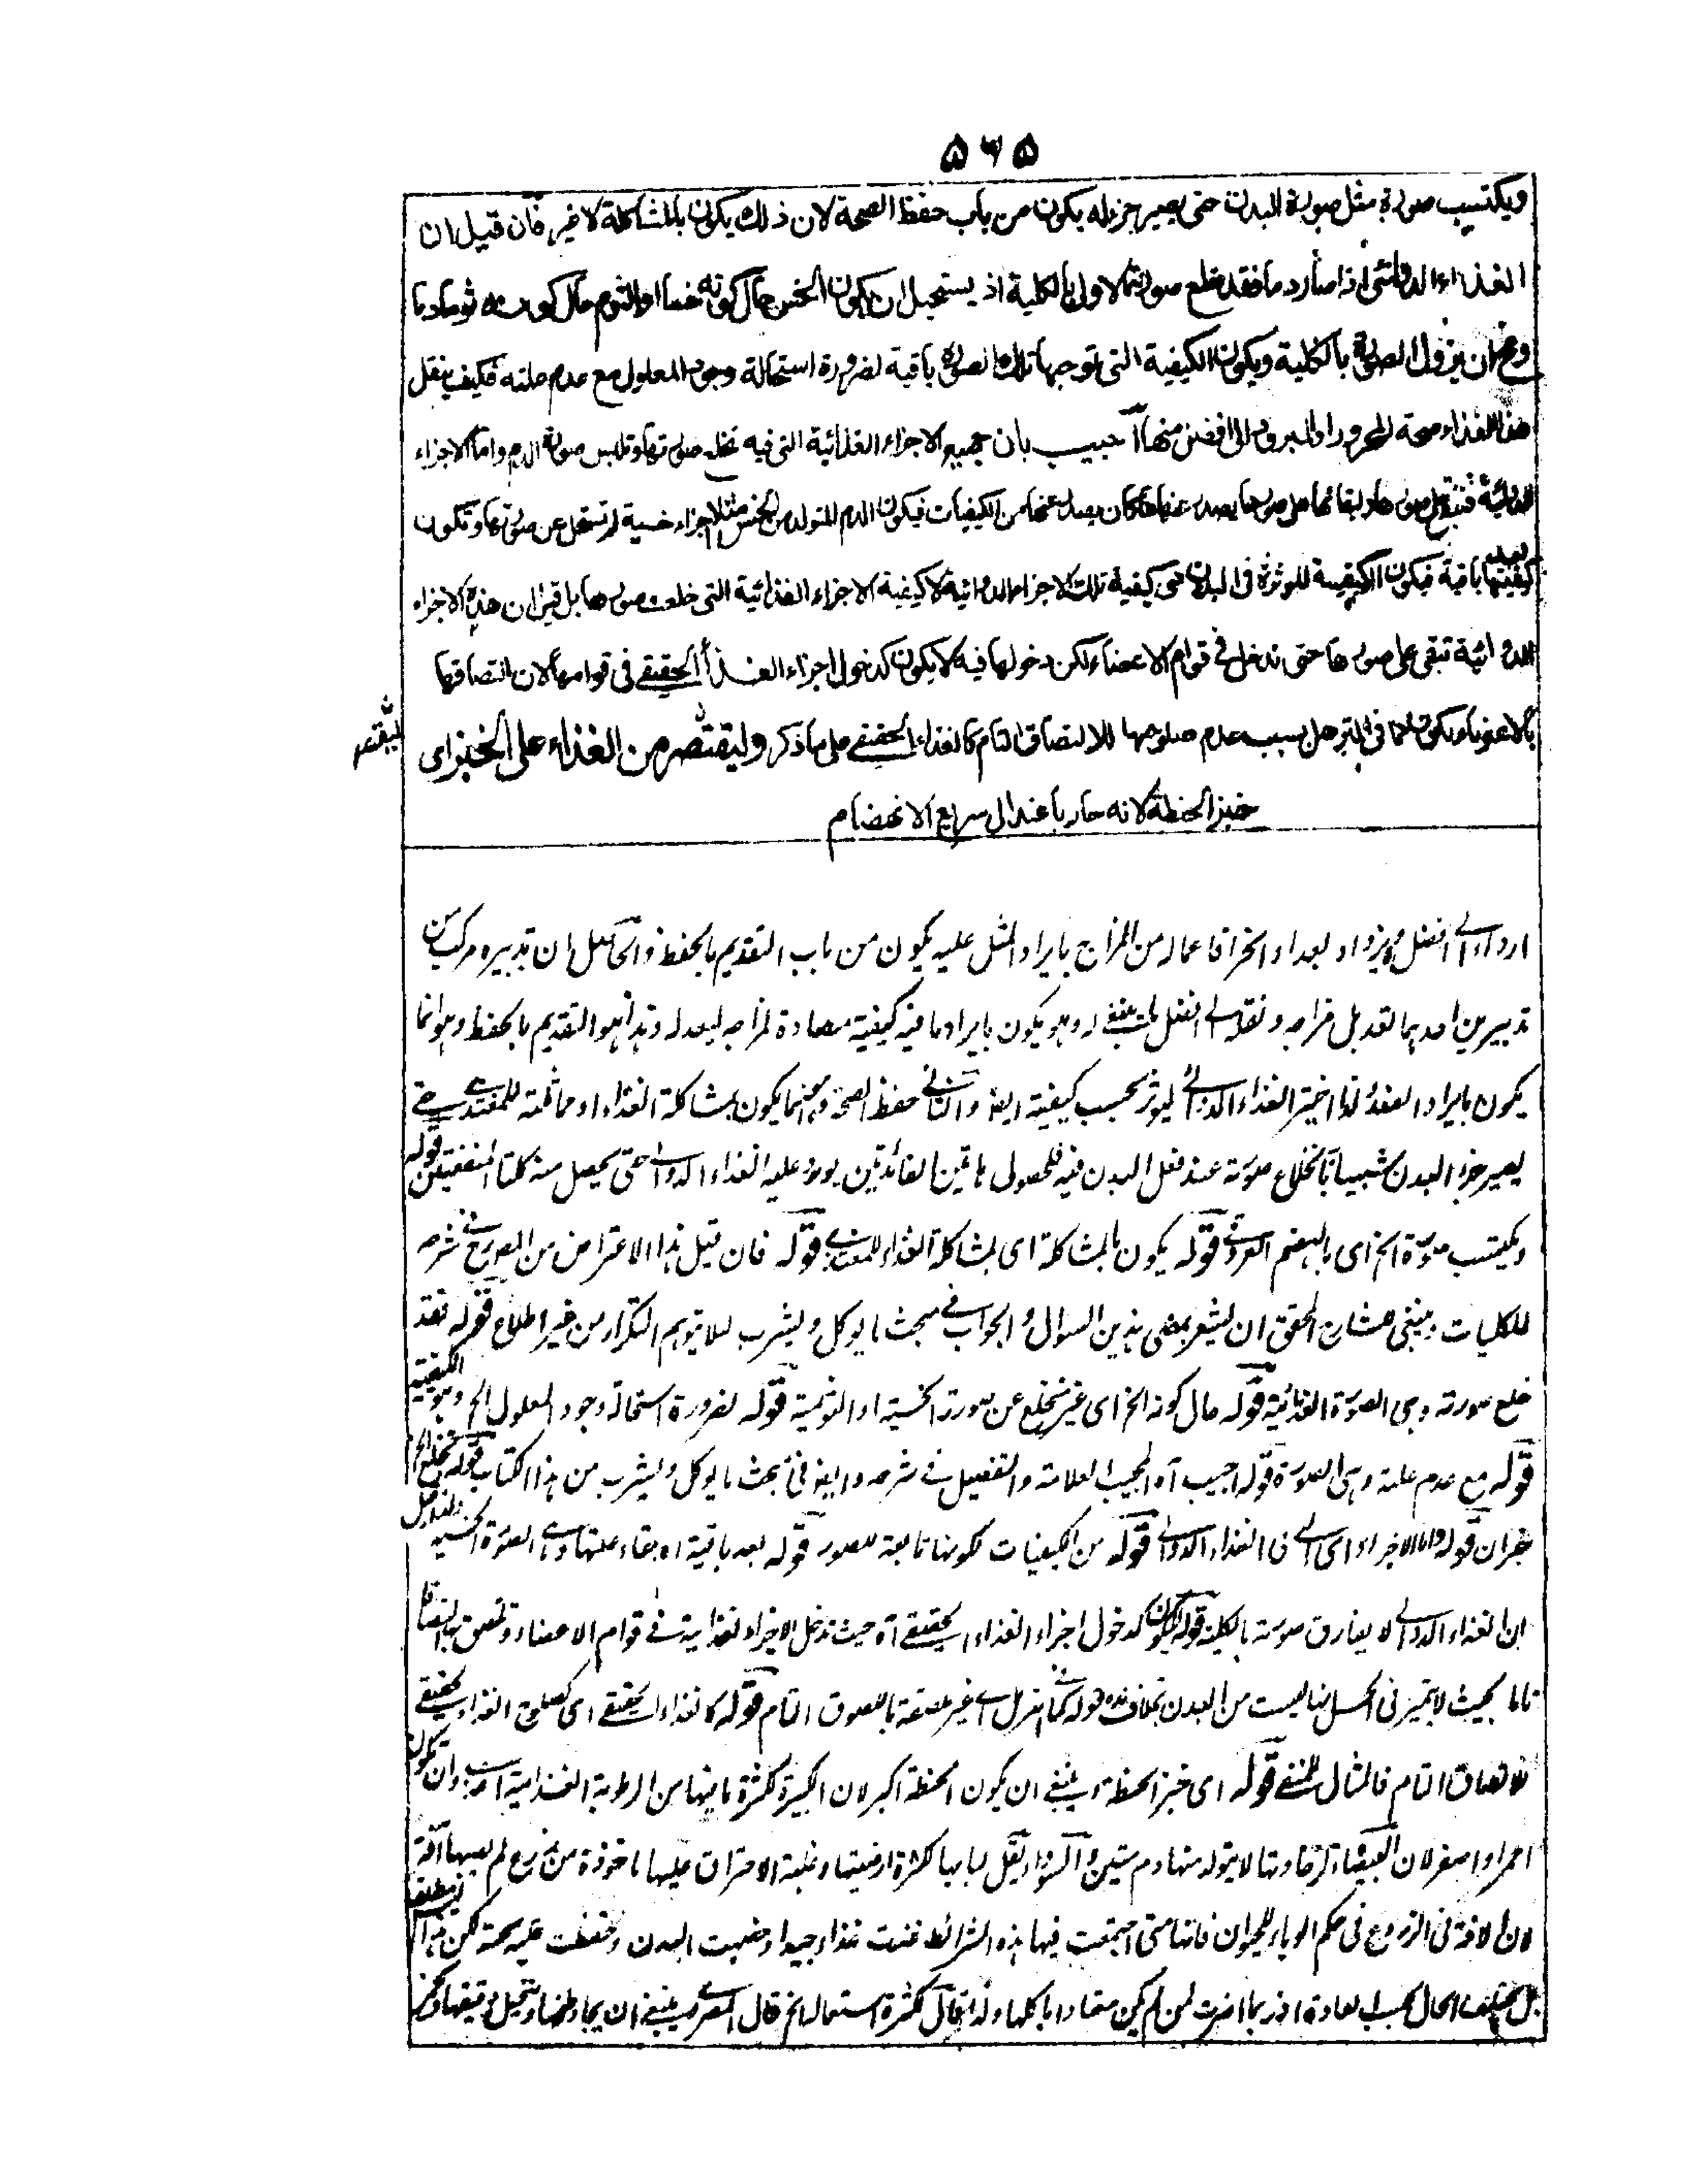 ۵۶۵
ويكتسب صورة مثل صورة البدن حتى يصير جزءله يكون من باب حفظ الصحة لان ذلك يكون بالمشاكلة لا غير فان قيل ان
الغذاء الدوائى اذا صار دما فقد خلع صورته الاولى بالكلية اذ يستحيل ان يكون الخس حال كونه خسا او الثوم حال كونه ثوما دما
ومح ان يزول الصورة بالكلية ويكون الكيفية التى توجبها تلك الصورة باقية لضرورة استحالة وجود المعلول مع عدم علته فكيف ينقل
هذا الغذاء صحة المحرور او المبرود الى افضل منها اجيب بان جميع الاجزاء الغذائية التى فيه تخلع صورتها وتلبس صورة الدم واما الاجزاء
الدوائية فتبقى على صورها ولبقائها على صورها يصدر عنها ما كان يصدر عنها من الكيفيات فيكون الدم المتولد من الخس مثلا اجزاء خسية لم تستحل عن صورتها وتكون
كيفيتها بعد باقية فيكون الكيفية الموثرة فى البدن هى كيفية تلك الاجزاء الدوائية لا كيفية الاجزاء الغذائية التى خلعت صورها بل قيل ان هذه الاجزاء
الدوائية تبقى على صورها حتى تدخل فى قوام الاعضاء لكن دخولها فيه لا يكون كدخول اجزاء الغذاء الحقيقى فى قوامها لان التصاقها
بالاعضاء يكون كما فى الترهل بسبب عدم صلوحها للالتصاق التام كالغذاء الحقيقى على ما ذكر وليقتصر من الغذاء على الخبز اى
خبز الحنطة لانه حار باعتدال سريع الانهضام
اردأ الى افضل و يزداد لبعد او الخ اقاعماله من المزاج بايراد المثل عليه يكون من باب التقديم بالحفظ والحاصل ان تدبيره مركب من
تدبيرين احدهما تعديل مزاجه ونقله الى افضل له وهو يكون بايراد ما فيه كيفية مضادة لمزاجه ليعدله وهذا هو التقديم بالحفظ وهو انما
يكون بايراد الغذاء لذا اختير الغذاء الدوائى ليوثر بحسب كيفيته ايضا والثانى حفظ الصحة وهو انما يكون بمشاكلة الغذاء او مماثلته للمغتذى حتى
يصير جزء البدن شبيها بانخلاع صورته عند فعل البدن فيه فلحصول هاتين الفائدتين يورد عليه الغذاء الدوائى حتى يحصل منه كلتا المنفعتين قوله
ويكتسب صورة الخ اى بالهضم العروقى قوله يكون بالمشاكلة اى بمشاكلة الغذاء للمغتذى قوله فان قيل هذا الاعتراض من المصرح فى شرحه
للكليات وينبغى من شان المحقق ان يشير بمضى هذين السوال والجواب فى مبحث ما يوكل ويشرب لئلا يتوهم التكرار من غير اطلاع قوله فقد
خلع صورته وهى الصورة الغذائية قوله حال كونه الخ اى غير منخلع عن صورته الخسية او الثومية قوله لضرورة استحالة وجود المعلول الخ وهو الكيفية
قوله مع عدم علته وهى الصورة قوله اجيب آه المجيب العلامة والتفصيل فى شرحه وايضا فى بحث ما يوكل ويشرب من هذا الكتاب قوله تخلع الخ
خبران قوله واما الاجزاء اى التى فى الغذاء الدوائى قوله من الكيفيات لكونها تابعة للصور قوله بعد باقية اه بقاء علتها وهى الصورة الخسية
ان الغذاء الدوائى لا يفارق صورته بالكلية قوله لا يكون كدخول اجزاء الغذاء الحقيقى آه حيث تدخل الاجزاء الغذائية فى قوام الاعضاء وتلتصق بها التصاقا
تاما بحيث لا يتميز فى الحس انها ليست من البدن بخلاف هذه قوله كما فى الترهل اى غير ملتصقة باللصوق التام قوله كالغذاء الحقيقى اى كصلوح الغذاء الحقيقى
للالتصاق التام فالمثال للمنفى قوله اى خبز الحنطة آه ينبغى ان يكون الحنطة اكبر لان الكبيرة لكثرة ما فيها من الرطوبة الغذائية وان تكون
احمر او اصفر لان البيضاء لرخاوتها لا يتولد منها دم متين والسوداء يقل لبابها لكثرة ارضيتها وغلبة الاحتراق عليها ماخوذة من زرع لم يصبها آفة
لان الافة فى الزروع فى حكم الوباء للحيوان فانها متى اجتمعت فيها هذه الشرائط غذت غذاء جيدا وخصبت البدن وحفظت عليه صحته لكن هذا ليس مطلقا
بل يختلف الحال بحسب العادة اذ ربما اضرت لمن لم يكن معتادا باكلها ولذا قال لكثرة استعماله الخ قال المصرح ينبغى ان يجاد طحنها ونخل دقيقها